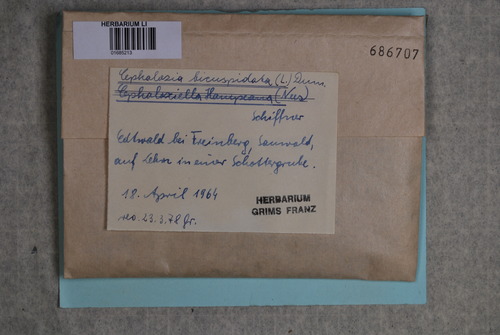 HERBARIUM LI
01685213
686707
Cephalozia bicuspidata (L.) Dum.
Cephaloziella Hampeana (Nees)
Schiffner
Edtwald bei Freinberg, Sauwald,
auf Lehm in einer Schottergrube.
18. April 1964
rev. 23.3.78 Gr.
HERBARIUM
GRIMS FRANZ